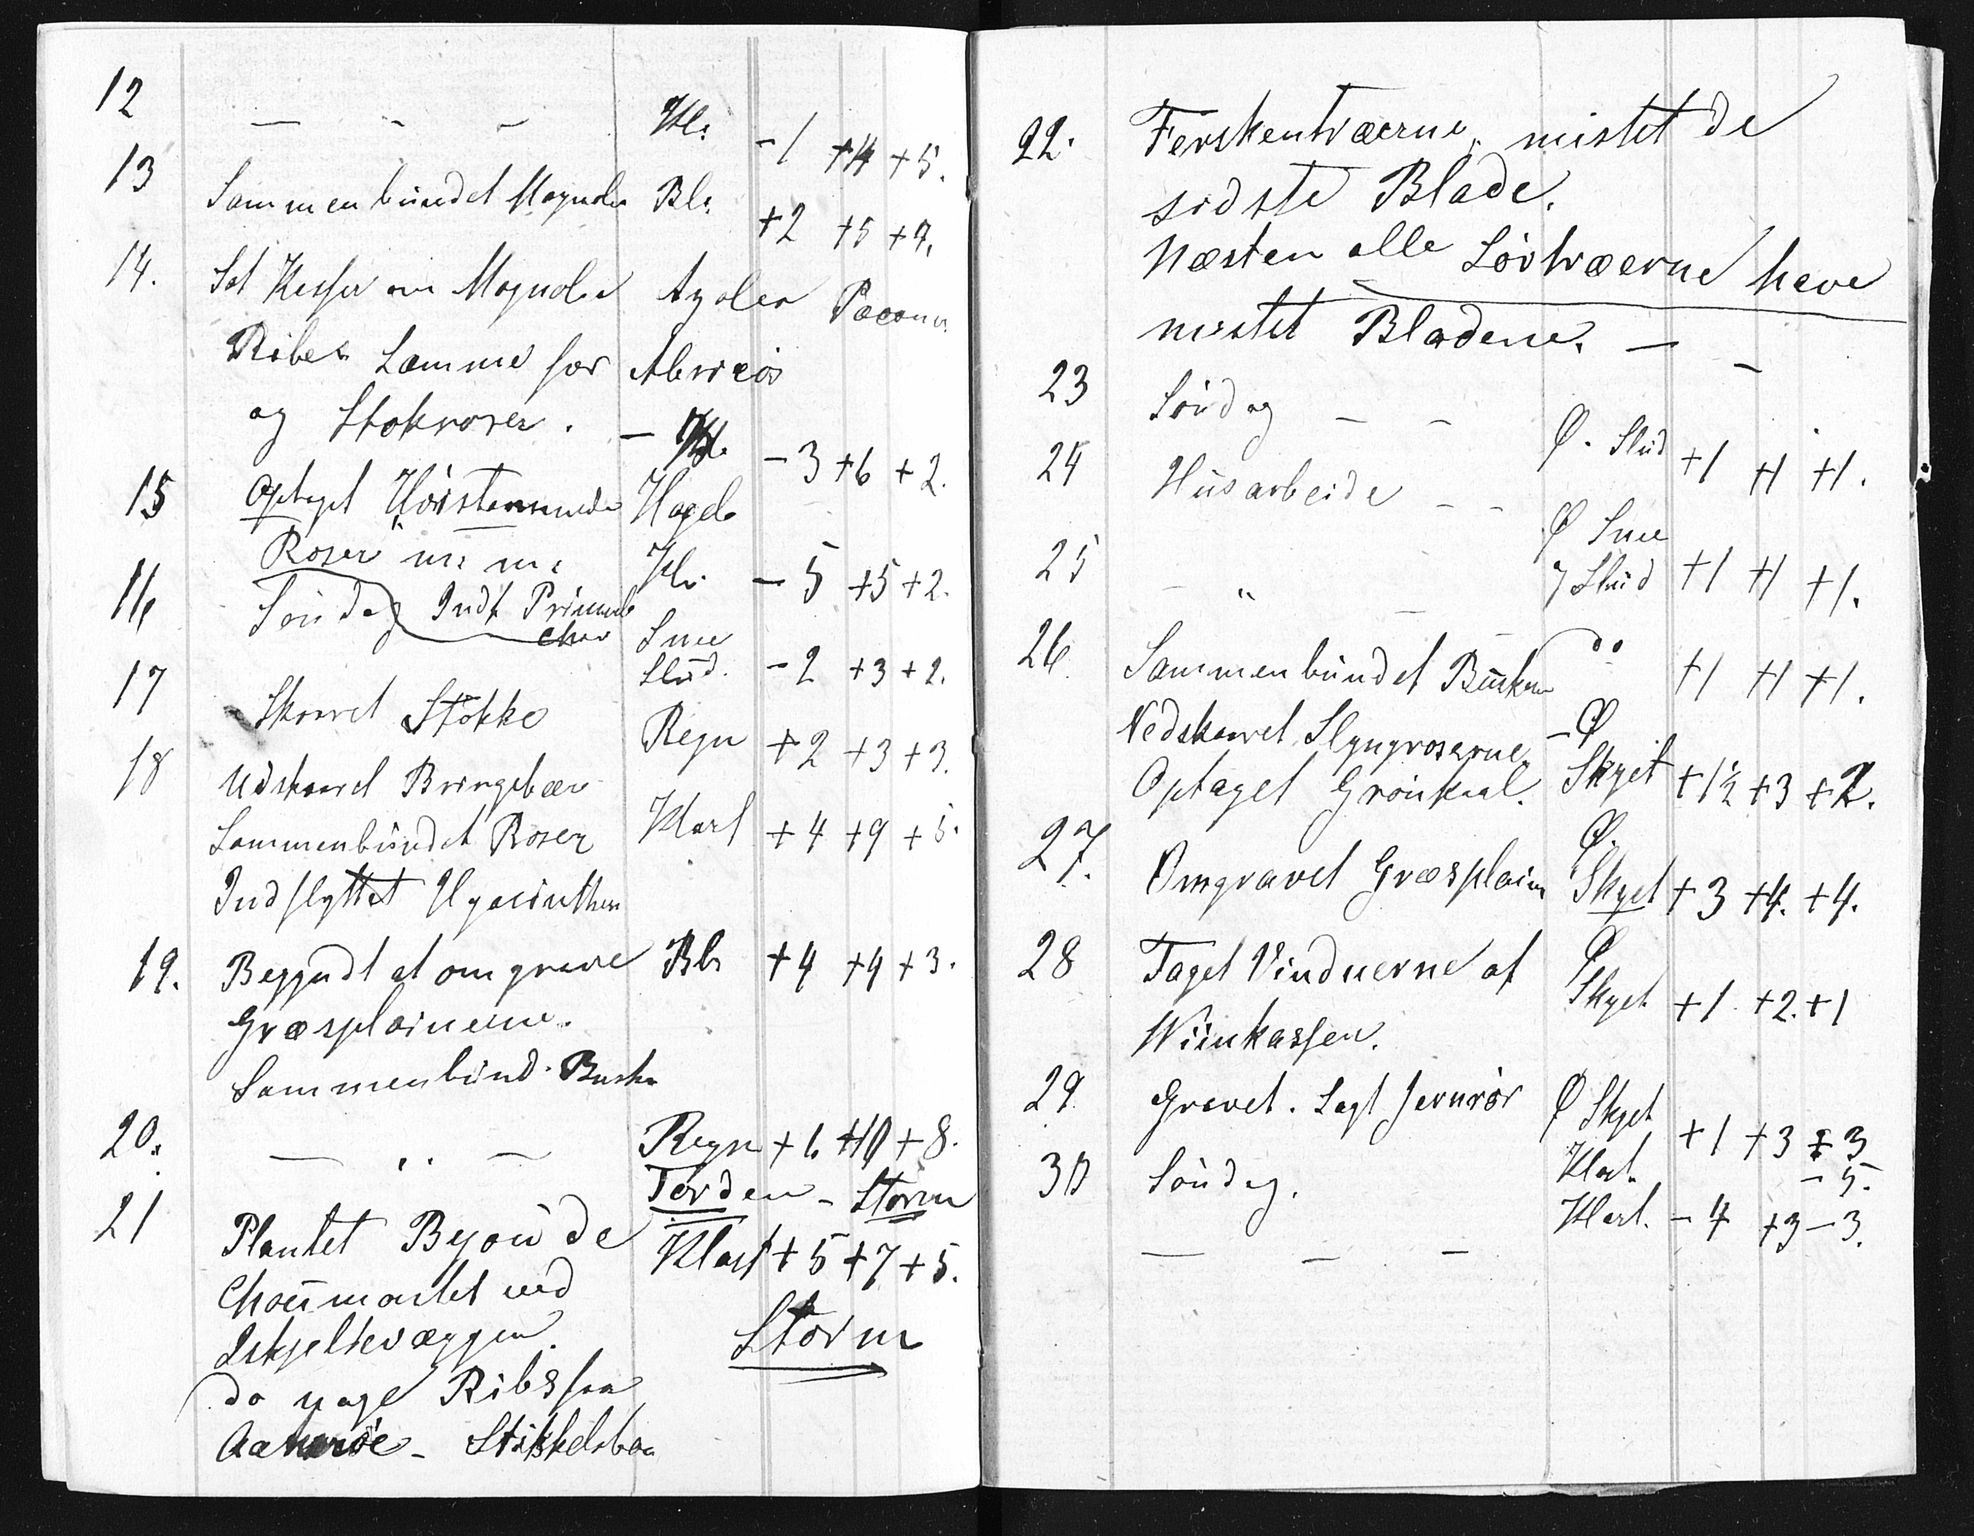 12 — - — Kl. - 1 +4 +5.
13 Sammenbundet Magnolia Bl. +2 +5 +7.
14. Sat Kasser om Magnolia Azalea Paeonia
Ribes Samme for Abricos
og Stokroser. — Kl. - 3 +6 +2.
15 Optaget Høistammede Hagel
Roser m: m: Kl. - 5 +5 +2.
16 Søndag Indf Primula
chor Snee
Slud. - 2 +3 +2.
17 Skaaret Stokke Regn +2 +3 +3.
18 Udskaaret Bringebær
Sammenbundet Roser Klart +4 +9 +5.
Indflyttet Hyacinther
19. Begyndt at omgrave Bl. +4 +4 +3.
Græsplainerne.
Sammenbund. Buske
20. — " — Regn +6 +10 +8.
Torden - Storm
21 Plantet Bejou de Klart +5 +7 +5.
Choumontet ved
Storm
do
Ribs fra
- Stikkelsbær
22. Ferskentræerne mistet de
sidste Blade.
Næsten alle Løvtræerne have
mistet Bladene. — —
23 Søndag — — Ø. Slud +1 +1 +1.
24 Husarbeide - - Ø Snee
25 - " - Slud +1 +1 +1.
26. Sammenbundet Buskene do +1 +1 +1.
Nedskaaret Slyngroserne - Ø
Optaget Grønkaal. Skyet +1½ +3 +2.
27. Omgravet Græsplainen Ø. Skyet +3 +4. +4.
28 Taget Vinduerne af Ø Skyet +1 +2. +1
Wiinkassen.
29. Gravet. Lagt Jernrør Ø Skyet +1 +3 +3
30 Søndag. Klart. - 5.
Klart. - 4 +3 - 3.
— — —